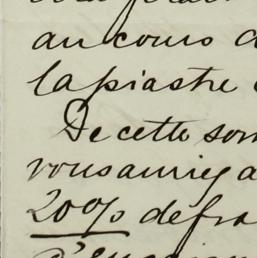 au cours d
la piastre
De cette som
vous auriez a
20% de fra